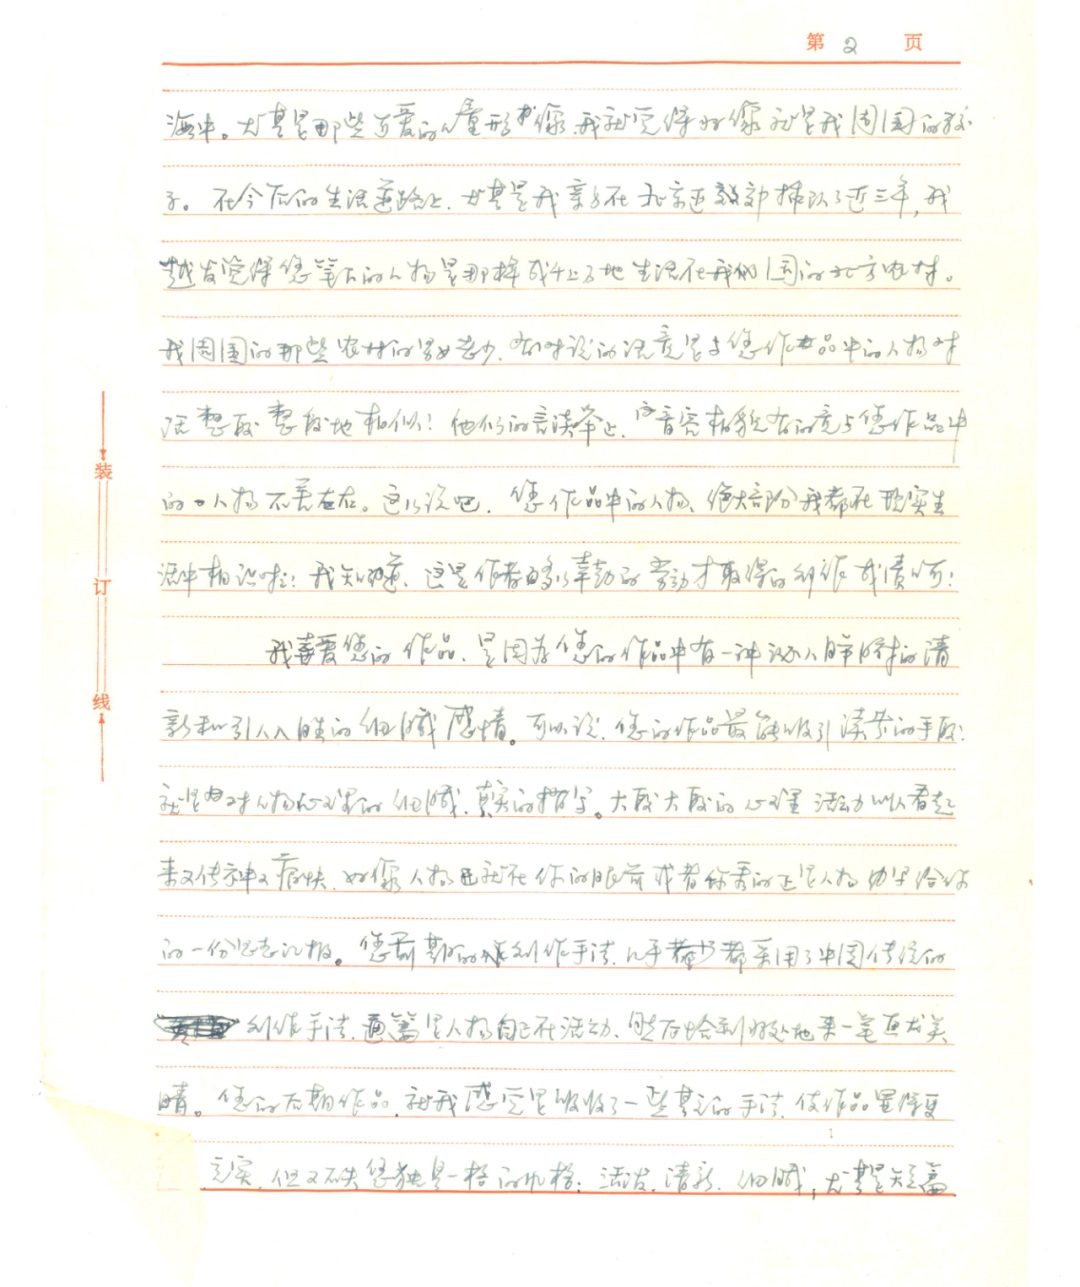 第 2 页
海中。尤其是那些可爱的儿童形象,我就觉得好像就是我周围的孩
子。在今后的生活道路上,尤其是我亲身在北京近郊插队了近三年,我
越发觉得您笔下的人物是那样成千上万地生活在我们国的北方农村。
我周围的那些农村的男女老少,有时说的话竟是与您作品中的人物对
话整段整段地相似!他们的言谈举止,音容相貌有的竟与您作品中
的人物不差左右。这么说吧,您作品中的人物,绝大部份我都在现实生
活中相识啦!我知道,这是作者多么辛勤的劳动才取得的创作成绩啊!
我喜爱您的作品,是因为您的作品中有一种逐人的清
新和引人入胜的细腻感情。可以说,您的作品最能吸引读者的手段:
就是对人物心理的细腻,真实的描写。大段大段的心理活动叫人看起
来又传神又痛快,好像人物就在你的眼前或者你看的正是人物力早给你
的一份思想汇报。您前期的创作手法,几乎都采用了中国传统的
创作手法,通篇是人物自己在活动,然后恰到好处地来一笔画龙点
睛。您的后期作品,就我感觉是吸收了一些其它的手法,使作品显得更
充实,但又不失您独具一格的风格:活泼,清新,细腻,尤其是短篇
装
订
线